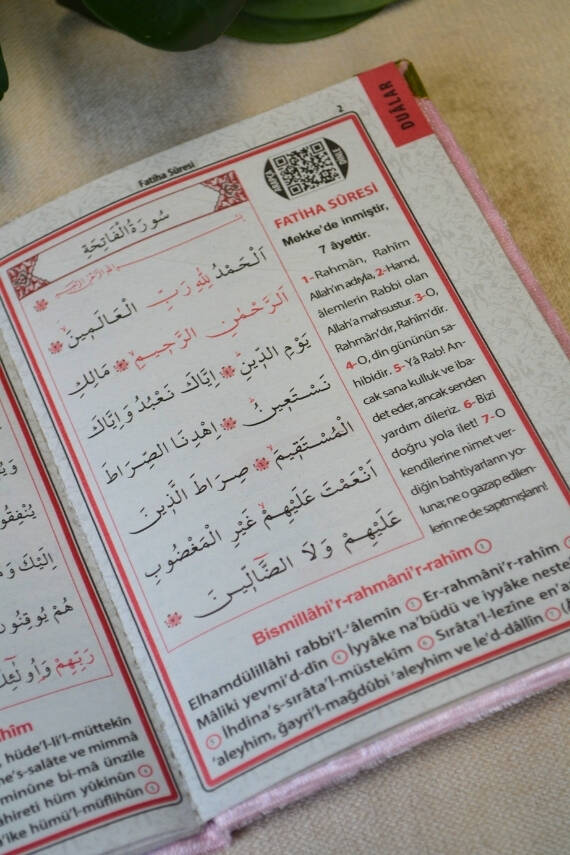 2
DUÂLAR
Fatiha Sûresi
سُورَةُ الْفَاتِحَةِ
اَلْحَمْدُ لِلّٰهِ رَبِّ الْعَالَمِينَ
اَلرَّحْمٰنِ الرَّحِيمِ مَالِكِ
يَوْمِ الدِّينِ اِيَّاكَ نَعْبُدُ وَاِيَّاكَ
نَسْتَعِينُ اِهْدِنَا الصِّرَاطَ
الْمُسْتَقِيمَ صِرَاطَ الَّذِينَ
اَنْعَمْتَ عَلَيْهِمْ غَيْرِ الْمَغْضُوبِ
عَلَيْهِمْ وَلَا الضَّٓالِّينَ
FATİHA SÛRESİ
Mekke'de inmiştir,
7 âyettir.
1-Rahmân, Rahîm
Allah'ın adıyla, 2-Hamd,
âlemlerin Rabbi olan
Allah'a mahsustur. 3-O,
Rahmân'dır, Rahîm'dir.
4-O, din gününün sa-
hibidir. 5-Yâ Rab! An-
cak sana kulluk ve iba-
det eder, ancak senden
yardım dileriz. 6-Bizi
doğru yola ilet! 7-O
kendilerine nimet ver-
diğin bahtiyarların yo-
luna; ne o gazap edilen-
lerin ne de sapıtmışların!
Bismillâhi'r-rahmâni'r-rahîm 1
Elhamdülillâhi rabbi'l-'âlemîn 2 Er-rahmâni'r-rahîm
Mâliki yevmi'd-dîn 4 İyyâke na'büdü ve iyyâke neste
5 İhdina's-sırâta'l-müstekîm 6 Sırâta'l-lezine en'a
'aleyhim, ğayri'l-mağdûbi 'aleyhim ve le'd-dâllîn 7
يُنْفِقُو
اِلَيْكَ وَ
هُمْ يُوقِنُو
رَبِّهِمْ وَاُولٰٓئِكَ
hîm
hüde'l-li'l-müttekîn
ne's-salâte ve mimmâ
minûne bi-mâ ünzile
âhireti hüm yûkinûn
'ike hümü'l-müflihûn